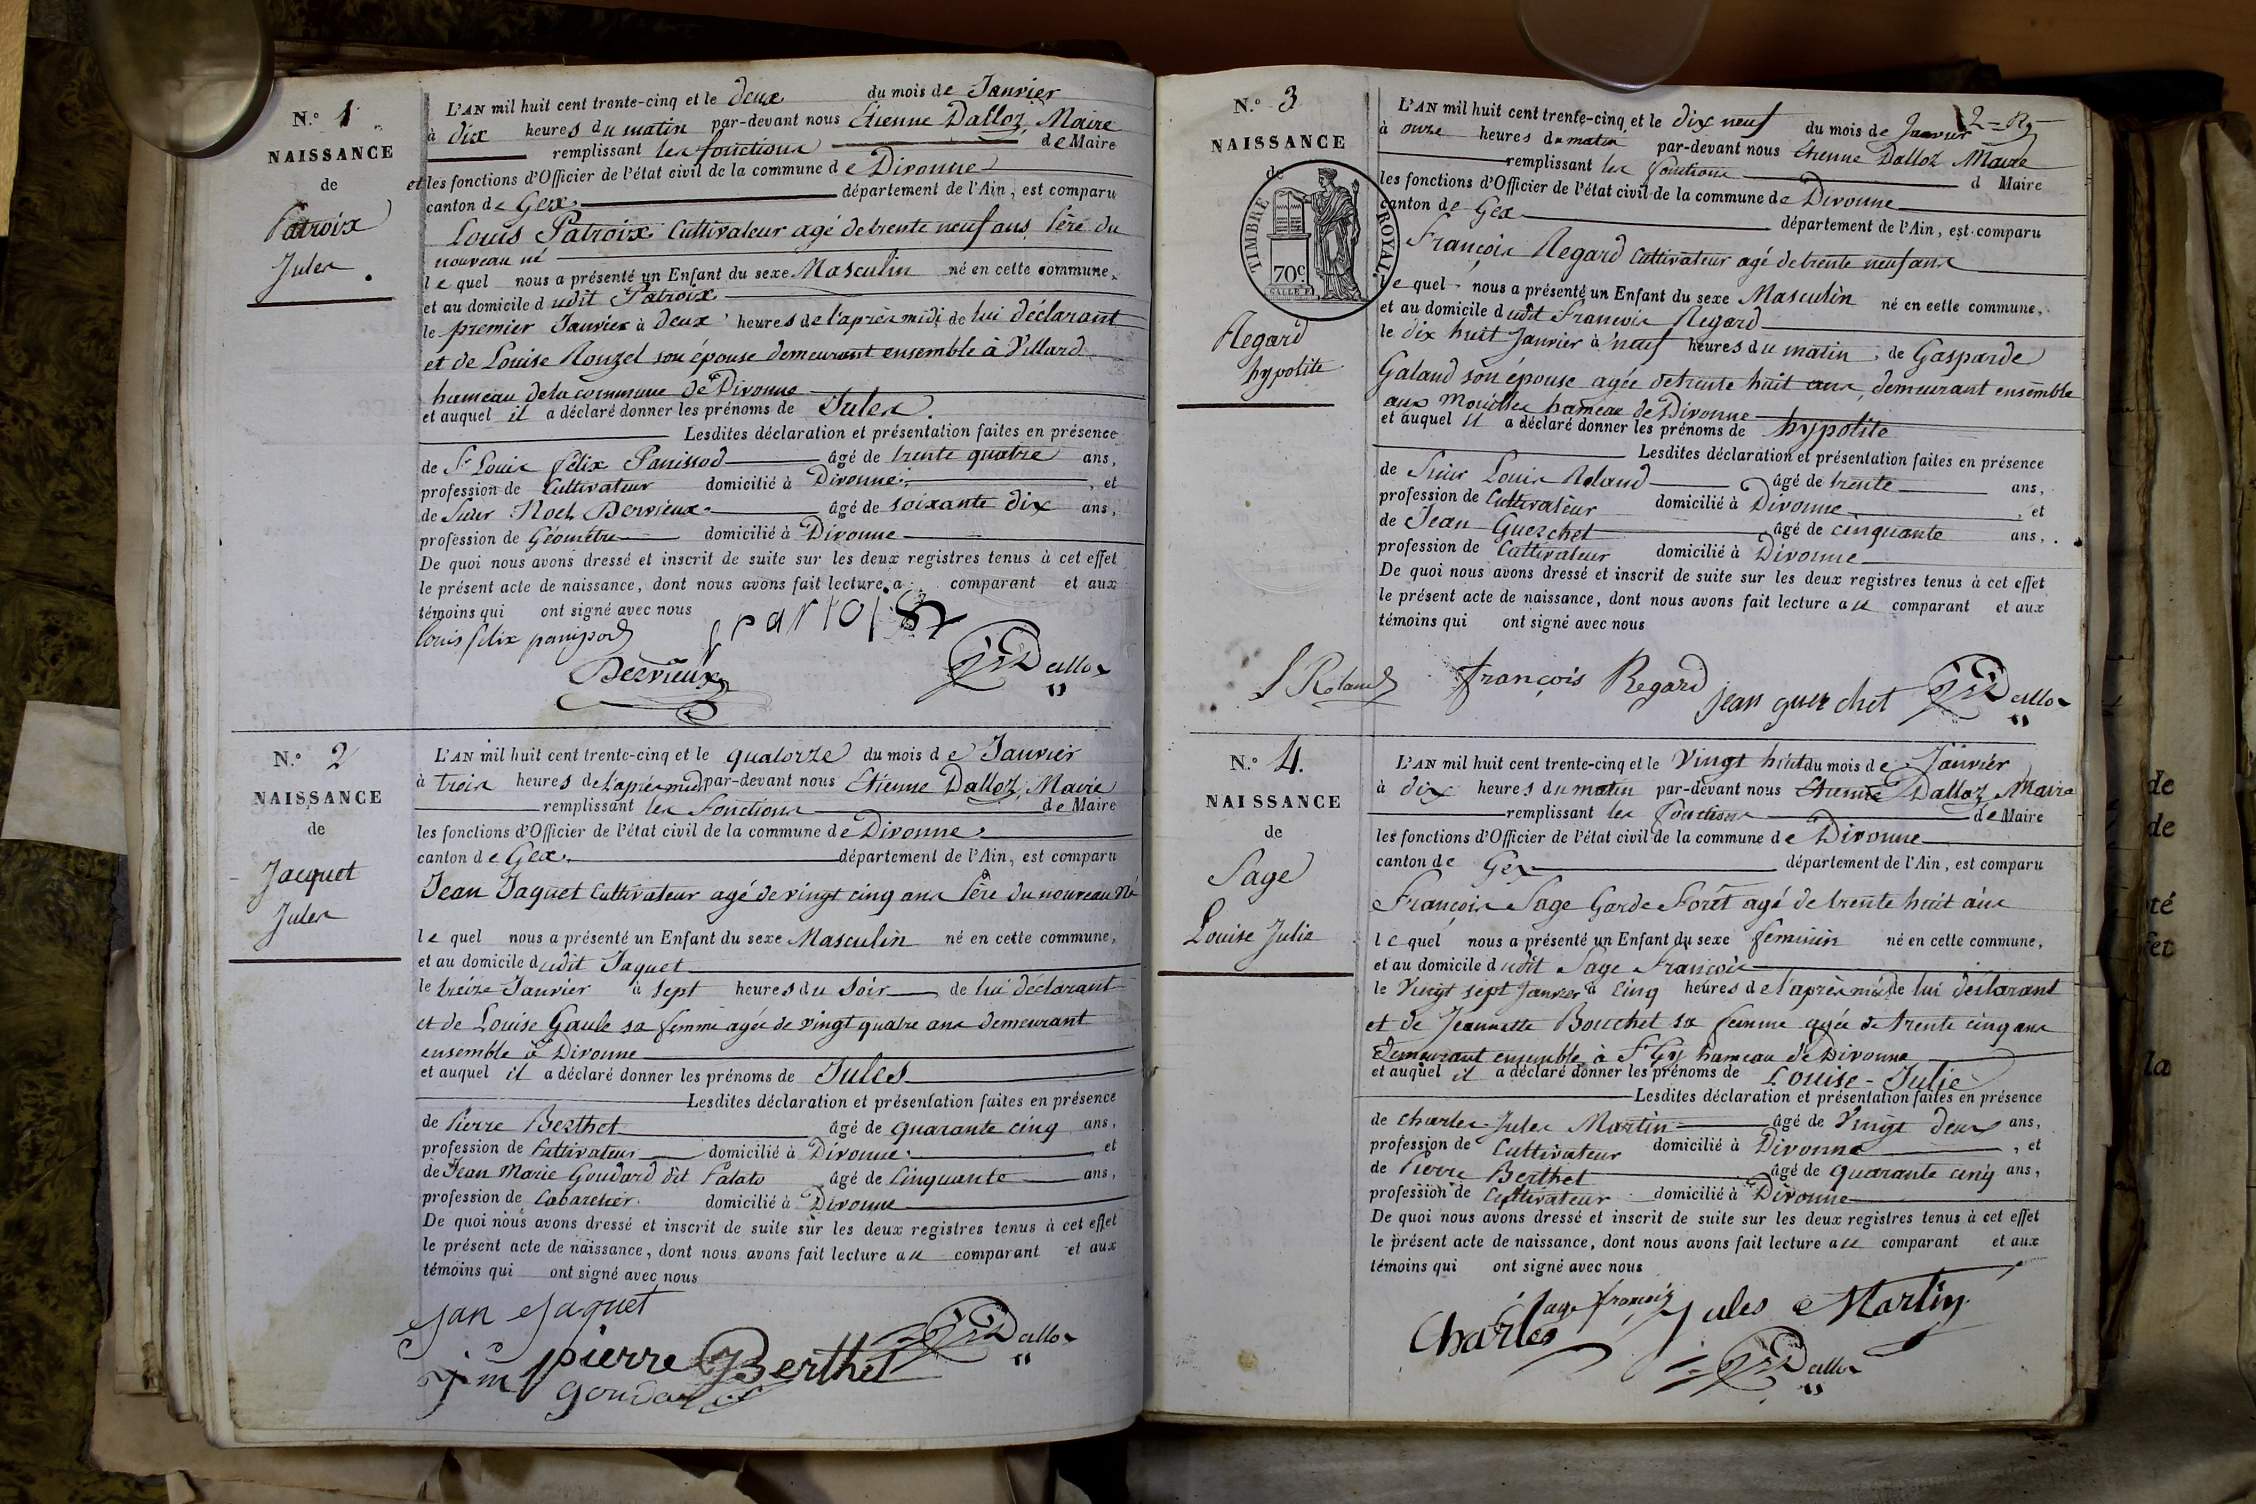 N.º 1
NAISSANCE
de
Patroix
Jules
L'AN mil huit cent trente-cinq et le deux du mois de Janvier
à dix heures du matin par-devant nous Etienne Dalloz, Maire
remplissant les fonctions de Maire
et les fonctions d'Officier de l'état civil de la commune de Divonne
canton de Gex. département de l'Ain, est comparu
Louis Patroix Cultivateur agé de trente neuf ans Père du
nouveau né
lequel nous a présenté un Enfant du sexe Masculin né en cette commune,
et au domicile dudit Patroix
le premier Janvier à deux heures de l'après midi de lui déclarant
et de Louise Rouzel son épouse demeurant ensemble à Villard
hameau de la commune de Divonne
et auquel il a déclaré donner les prénoms de Jules.
Lesdites déclaration et présentation faites en présence
de Sr Louis félix Panissod âgé de trente quatre ans,
profession de Cultivateur domicilié à Divonne, et
de Sieur Noel Dervieux âgé de soixante dix ans,
profession de Géomètre domicilié à Divonne
De quoi nous avons dressé et inscrit de suite sur les deux registres tenus à cet effet
le présent acte de naissance, dont nous avons fait lecture a comparant et aux
témoins qui ont signé avec nous
louis félix panissod
Dervieux
Dalloz
N.º 2
NAISSANCE
de
Jacquet
Jules
L'AN mil huit cent trente-cinq et le quatorze du mois de Janvier
à trois heures de l'après midi par-devant nous Etienne Dalloz, Maire
remplissant les fonctions de Maire
les fonctions d'Officier de l'état civil de la commune de Divonne
canton de Gex. département de l'Ain, est comparu
Jean Jaquet Cultivateur agé de vingt cinq ans Père du nouveau Né
lequel nous a présenté un Enfant du sexe Masculin né en cette commune,
et au domicile dudit Jaquet
le treize Janvier à sept heures du soir de lui déclarant
et de Louise Gaule sa femme agée de vingt quatre ans demeurant
ensemble à Divonne
et auquel il a déclaré donner les prénoms de Jules
Lesdites déclaration et présentation faites en présence
de Pierre Berthet âgé de quarante cinq ans,
profession de Cultivateur domicilié à Divonne et
de Jean Marie Goudard dit Palato âgé de Cinquante ans,
profession de Cabaretier domicilié à Divonne
De quoi nous avons dressé et inscrit de suite sur les deux registres tenus à cet effet
le présent acte de naissance, dont nous avons fait lecture au comparant et aux
témoins qui ont signé avec nous
jan jaquet
Dalloz
pierre Berthet
j m goudard
2 = Rg
N.º 3
NAISSANCE
de
TIMBRE ROYAL
70c
GALLE F.
Regard
hypolite
L'AN mil huit cent trente-cinq et le dix neuf du mois de Janvier
à onze heures du matin par-devant nous Etienne Dalloz Maire
remplissant les fonctions d Maire
les fonctions d'Officier de l'état civil de la commune de Divonne
canton de Gex département de l'Ain, est comparu
François Regard Cultivateur agé de trente neuf ans
lequel nous a présenté un Enfant du sexe Masculin né en cette commune,
et au domicile dudit François Regard
le dix huit Janvier à neuf heures du matin, de Gasparde
Galand son épouse agée de trente huit ans, demeurant ensemble
aux Mouilles hameau de Divonne
et auquel il a déclaré donner les prénoms de hypolite
Lesdites déclaration et présentation faites en présence
de Sieur Louis Roland âgé de trente ans,
profession de Cultivateur domicilié à Divonne, et
de Jean Guerchet âgé de cinquante ans,
profession de Cultivateur domicilié à Divonne
De quoi nous avons dressé et inscrit de suite sur les deux registres tenus à cet effet
le présent acte de naissance, dont nous avons fait lecture au comparant et aux
témoins qui ont signé avec nous
L Roland François Regard jean guerchet Dalloz
N.º 4.
NAISSANCE
de
Sage
Louise Julie
L'AN mil huit cent trente-cinq et le Vingt huit du mois de Janvier
à dix heures du matin par-devant nous Etienne Dalloz, Maire
remplissant les fonctions de Maire
les fonctions d'Officier de l'état civil de la commune de Divonne
canton de Gex département de l'Ain, est comparu
François Sage Garde Forêt agé de trente huit ans
lequel nous a présenté un Enfant du sexe feminin né en cette commune,
et au domicile dudit Sage François
le Vingt sept Janvier à Cinq heures de l'après midi de lui déclarant
et de Jeannette Bouchet sa femme agée de trente cinq ans
demeurant ensemble à St Gy hameau de Divonne
et auquel il a déclaré donner les prénoms de Louise-Julie
Lesdites déclaration et présentation faites en présence
de Charles Jules Martin âgé de Vingt deux ans,
profession de Cultivateur domicilié à Divonne, et
de Pierre Berthet âgé de quarante cinq ans,
profession de Cultivateur domicilié à Divonne
De quoi nous avons dressé et inscrit de suite sur les deux registres tenus à cet effet
le présent acte de naissance, dont nous avons fait lecture au comparant et aux
témoins qui ont signé avec nous
Sage françois
Charles Jules Martin
Dalloz
de
de
té
fet
la